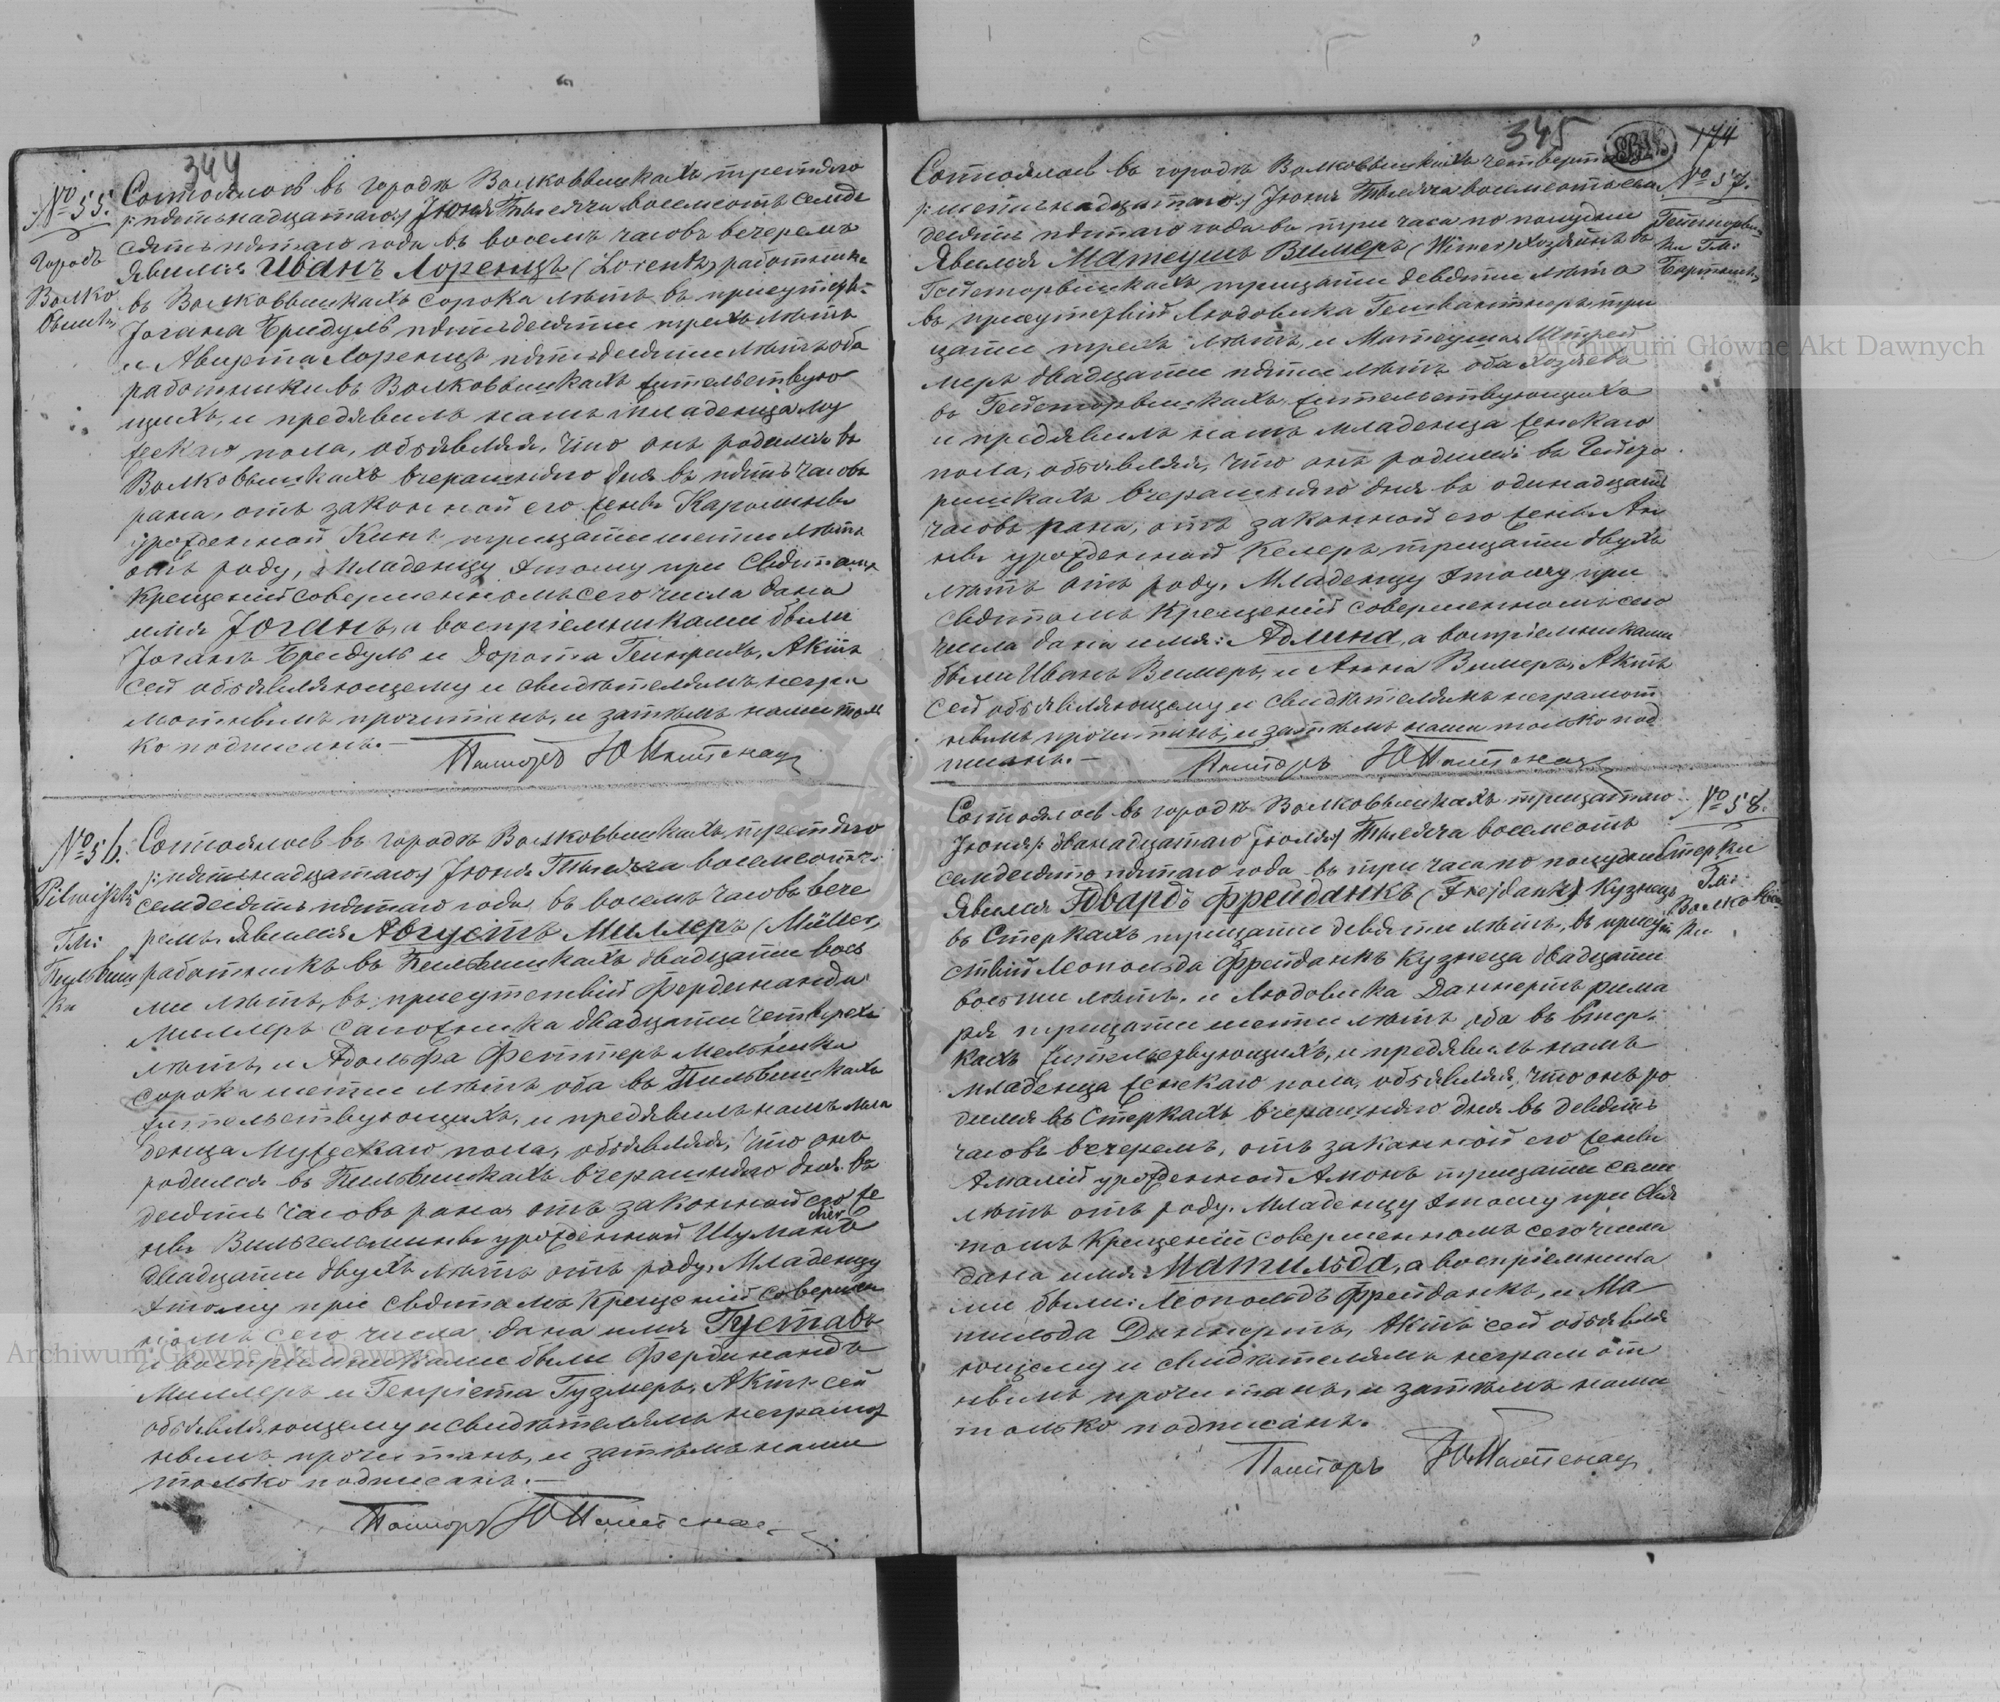 344
№ 55.
Городъ
Волко
вышки
Состоялось въ городѣ Волковышкахъ третьяго
/:пятьнадцатаго:/ Іюня Тысяча восемсотъ семде
сятъ пятаго года въ восемъ часовъ вечеромъ
Явился Иванъ Лоренцъ (Lorentz) работникъ
въ Волковышкахъ сорока лѣтъ, въ присутствіи
Іогана Бридуль пятьдесяти трехъ лѣтъ
и Августа Лоренцъ пятьдесяти лѣтъ оба
работники въ Волковышкахъ жительствую
щихъ, и предявилъ намъ младенца му
жескаго пола, объявляя, что онъ родился въ
Волковышкахъ вчерашняго дня въ пять часовъ
рана, отъ законной его жены Каролины
урожденной Кинъ тридцати шести лѣтъ
отъ роду, Младенцу этому при Святомъ
Крещеніи совершенномъ сего числа дано
имя Іоганъ, а воспріемниками были
Іоганъ Бридуль и Дорота Гейнрихъ, Актъ
сей объявляющему и свидѣтелямъ негра
мотнымъ прочитанъ, и затѣмъ нами толь
ко подписанъ.—
Пасторъ
№ 56.
Pilwiszki
Гм:
Пильвиш
ки
Состоялось въ городѣ Волковышкахъ, третьяго
/:пятьнадцатаго:/ Іюня Тысяча восемсотъ
семдесятъ пятаго года, въ восемъ часовъ вече
ромъ, явился Августъ Миллеръ (Müller)
работникъ въ Пильвишкахъ двадцати вось
ми лѣтъ, въ присутствіи Фердинанда
Миллеръ сапожника двадцати четырехъ
лѣтъ, и Адольфа Феттеръ мельника
сорока шести лѣтъ оба въ Пильвишкахъ
жительствующихъ, и предявилъ намъ мла
денца Мужескаго пола, объявляя, что онъ
родился въ Пильвишкахъ вчерашняго дня въ
десять часовъ рана отъ законной его же
ны Вильгельмины урожденной Шуманъ
двадцати двухъ лѣтъ отъ роду, Младенцу
этому при Святомъ Крещеніи соверше
номъ сего числа дано имя Густавъ
а воспріемниками были Фердинандъ
Миллеръ и Генріета Гузмеръ, Актъ сей
объявляющему и свидѣтелямъ неграмот
нымъ прочитанъ, и затѣмъ нами
только подписанъ.—
Пасторъ
345
174
№ 57.
Гейсторвиш
ки Гм:
Состоялось въ городѣ Волковышкахъ четвертаго
/:шестьнадцатаго:/ Іюня Тысяча восемсотъ сем
десятъ пятаго года въ три часа по полудни
Явился Матеушъ Вимеръ (Wimer) хозяинъ въ
Гейсторвишкахъ тридцати девяти лѣтъ
въ присутствіи Людовика три
дцати трехъ лѣтъ, и Матеуша Штрей
меръ двадцати пяти лѣтъ оба хозяева
въ Гейсторвишкахъ жительствующихъ
и предявилъ намъ младенца женскаго
пола, объявляя, что онъ родился въ Гейсто
ришкахъ вчерашняго дня въ одинадцать
часовъ рана, отъ законной его жены Ан
ны урожденной Келеръ тридцати двухъ
лѣтъ отъ роду. Младенцу этому при
Святомъ Крещеніи совершенномъ сего
числа дано имя: Адлина, а воспріемниками
были Иванъ Вимеръ, и Анна Вимеръ, Актъ
сей объявляющему и свидѣтелямъ неграмот
нымъ прочитанъ, и затѣмъ нами только под
писанъ.—
Пасторъ
№ 58.
Стерки
Гм:
Волковыш
ки
Состоялось въ городѣ Волковышкахъ тридцатаго
Іюня /:дванадцатаго Іюля:/ Тысяча восемсотъ
семдесятъ пятаго года въ три часа по полудни
Явился Эдвардъ Фрейданкъ (Frejdank) Кузнецъ
въ Стеркахъ тридцати девяти лѣтъ, въ присут
ствіи Леопольда Фрейданкъ Кузнеца двадцати
восьми лѣтъ, и Людовика Даннертъ рима
ря тридцати шести лѣтъ оба въ Стер
кахъ жительствующихъ, и предявилъ намъ
младенца женскаго пола, объявляя, что онъ ро
дился въ Стеркахъ вчерашняго дня въ девять
часовъ вечеромъ, отъ законной его жены
Амаліи урожденной Амонъ тридцати семи
лѣтъ отъ роду. Младенцу этому при Свя
томъ Крещеніи совершенномъ сего числа
дано имя: Матильда, а воспріемника
ми были: Леопольдъ Фрейданкъ, и Ма
тильда Даннертъ, Актъ сей объявля
ющему и свидѣтелямъ неграмот
нымъ прочитанъ, и затѣмъ нами
только подписанъ.
Пасторъ
Archiwum Główne Akt Dawnych
Archiwum Główne Akt Dawnych